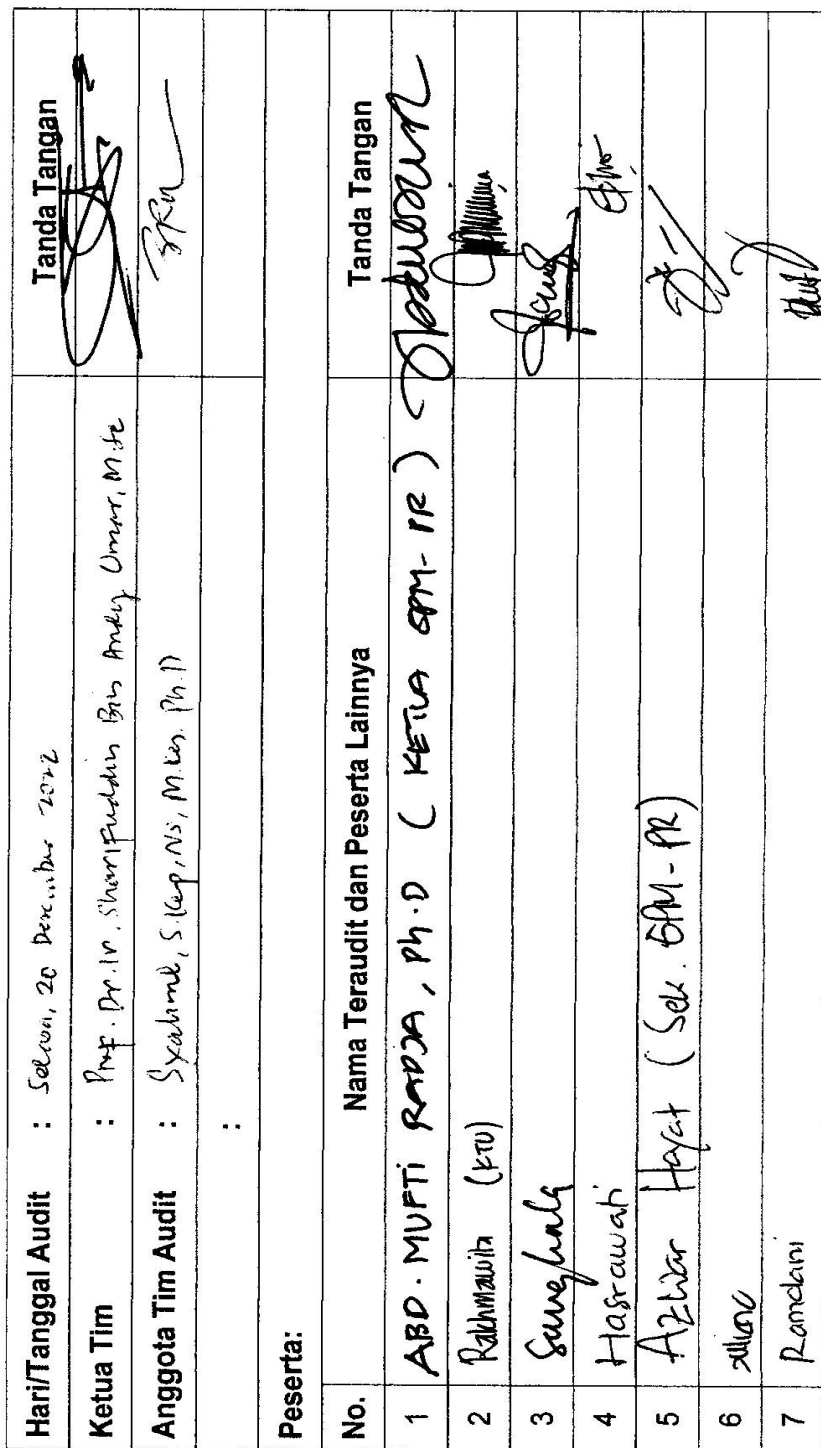 Hari/Tanggal Audit : Selasa, 20 Desember 2022
Tanda Tangan
Ketua Tim : Prof. Dr. Ir. Sharifuddin Bin Andy Omar, M.Sc
Anggota Tim Audit : Syahrul, S.Kep, Ns, M.Kes. Ph.D
:
Peserta:
No. Nama Teraudit dan Peserta Lainnya Tanda Tangan
1 ABD. MUFTI RADJA, Ph.D ( KETUA GPM-PR )
2 Rakhmawita (KTU)
3
4 Hasrawati
5 Azhar Hayat (Sek. GPM-PR)
6
7 Ramdani